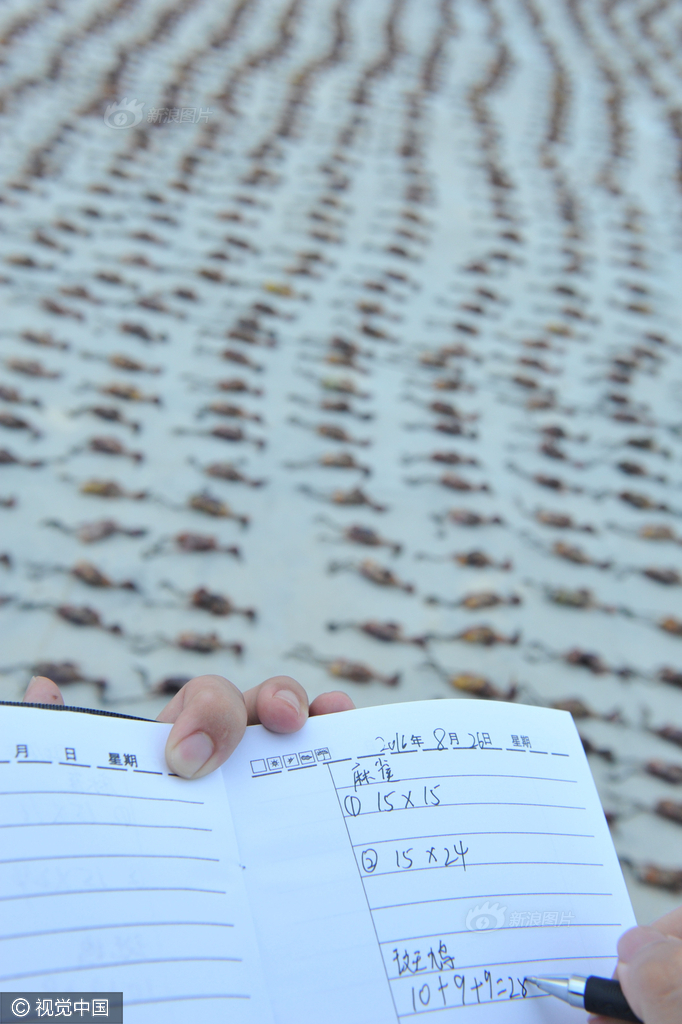 新浪图片
月 日 星期
2016年 8月 26日 星期
麻雀
① 15×15
② 15×24
新浪图片
斑鸠
10+9+9=28
© 视觉中国